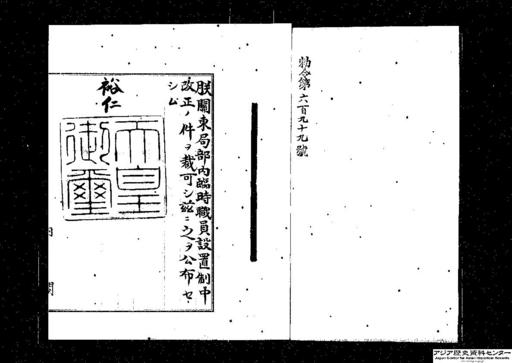 勅令第六百九十九號
朕關東局部內臨時職員設置制中
改正ノ件ヲ裁可シ茲ニ之ヲ公布セ
シム
裕仁
天皇
御璽
内
閣
アジア歴史資料センター
Japan Center for Asian Historical Records